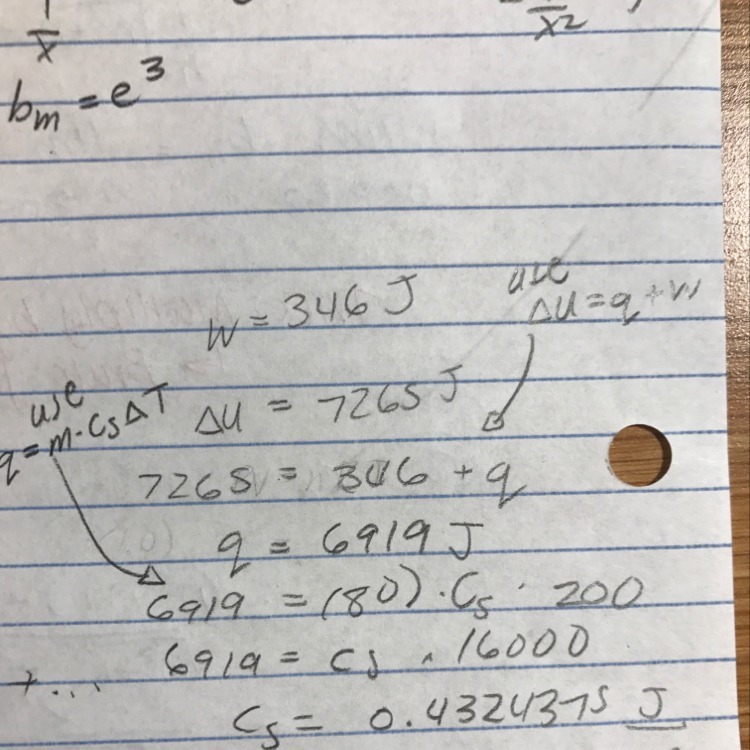 1/x
x²
bₘ = e³
use
W = 346 J
ΔU = q + w
use
q = m · Cs ΔT
ΔU = 7265 J
7265 = 346 + q
q = 6919 J
6919 = (80) · Cs · 200
6919 = Cs · 16000
+ ...
Cs = 0.4324375 J